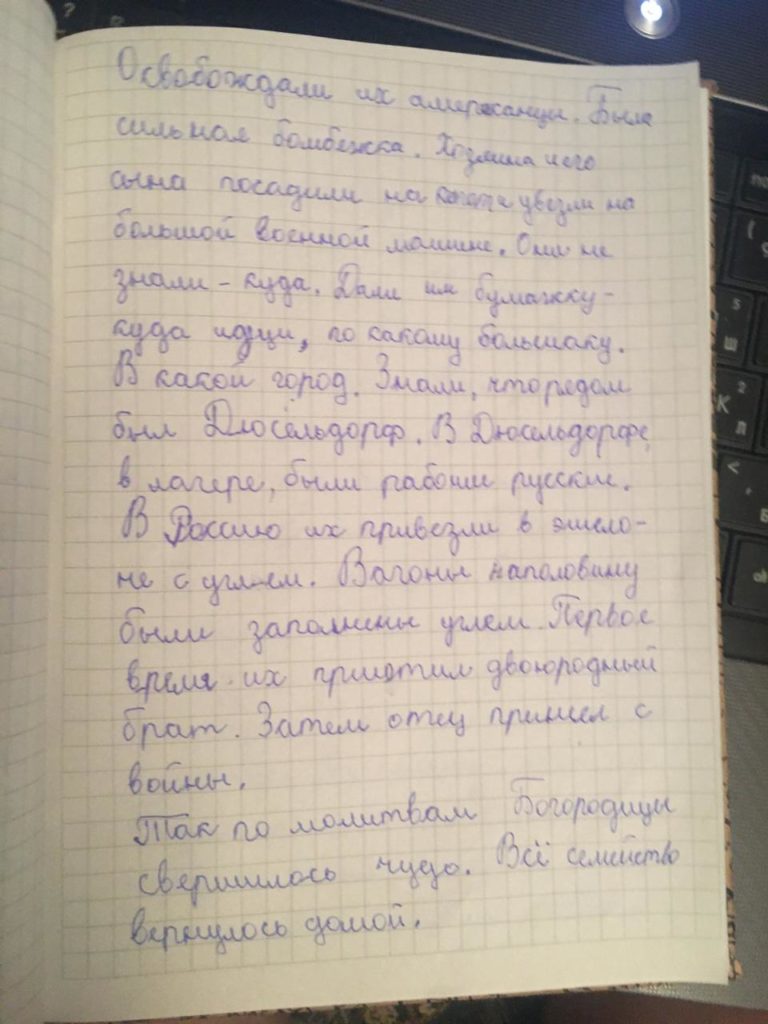 Освобождали их американцы. Была
сильная бомбежка. Хозяина и его
сына посадили на капот и увезли на
большой военной машине. Они не
знали - куда. Дали им бумажку -
куда идти, по какому большаку.
В какой город. Знали, что рядом
был Дюсельдорф. В Дюсельдорфе,
в лагере, были рабочие русские.
В Россию их привезли в эшело-
не с углем. Вагоны наполовину
были заполнены углем. Первое
время их приютил двоюродный
брат. Затем отец пришел с
войны.
Так по молитвам Богородицы
свершилось чудо. Всё семейство
вернулось домой.